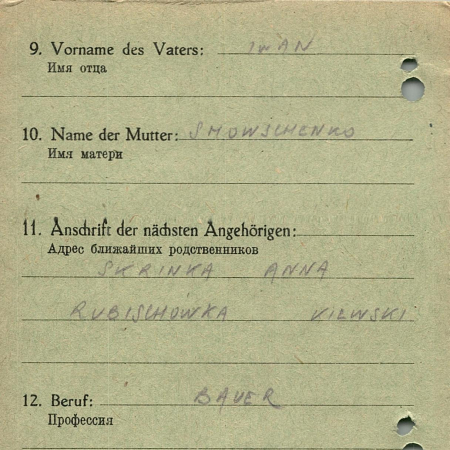 9. Vorname des Vaters: IWAN
Имя отца
10. Name der Mutter: SHOWSCHENKO
Имя матери
11. Anschrift der nächsten Angehörigen:
Адрес ближайших родственников
SKRINKA ANNA
RUBISCHOWKA KIEWSKI
12. Beruf: BAUER
Профессия